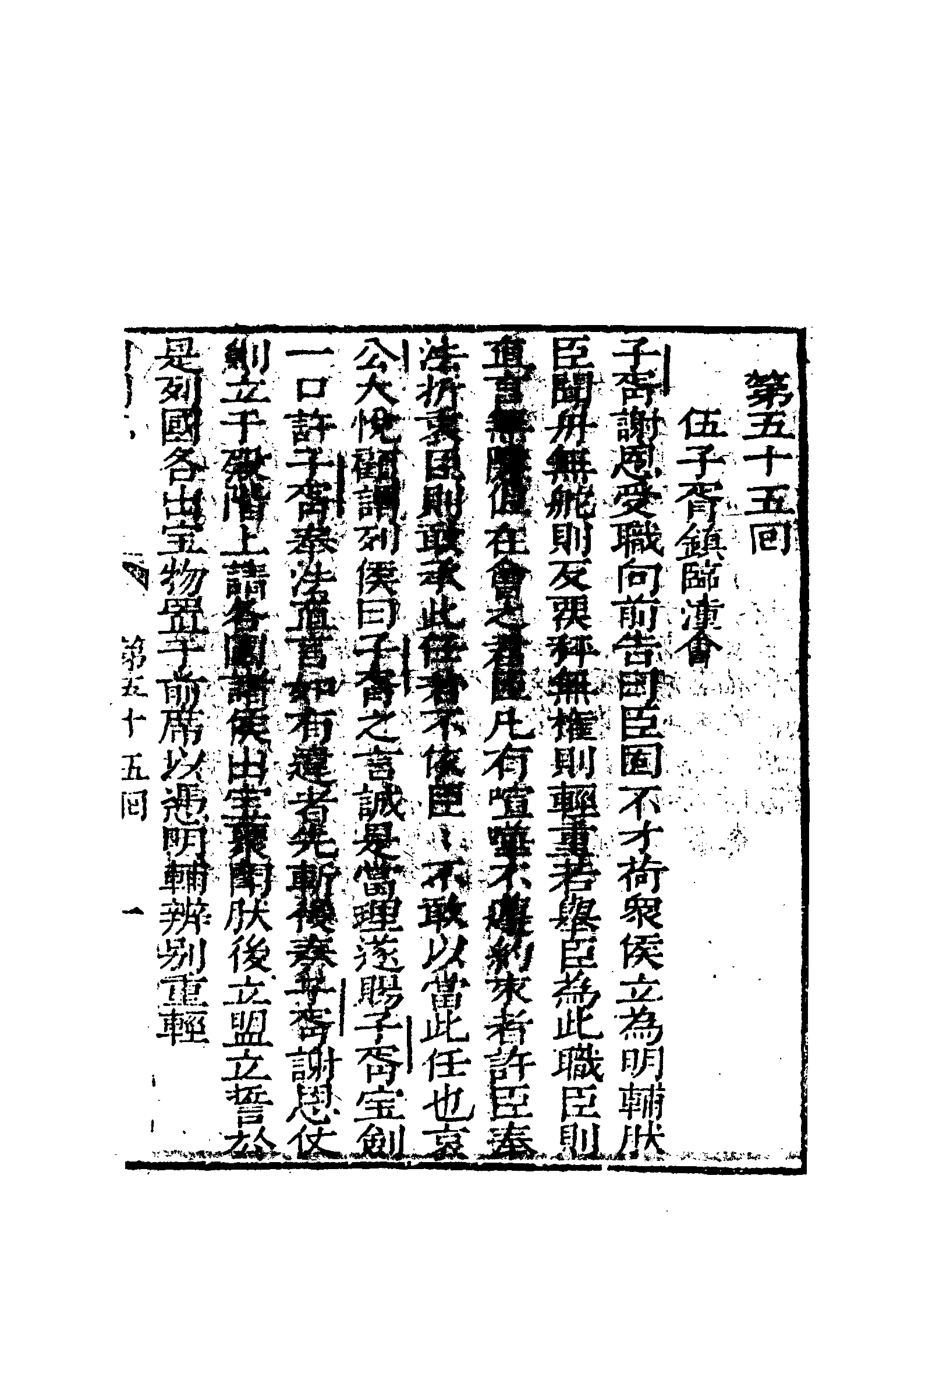 第五十五回
伍子胥鎮臨潼會
子胥謝恩受職向前告曰臣固不才荷眾侯立為明輔肰
臣聞舟無舵則反覆秤無權則輕重若舉臣為此職臣則
直言無隱但在會之君臣凡有喧嘩不遵約束者許臣奉
法折衷臣則敢承此任若不依臣〻不敢以當此任也哀
公大悅顧謂列侯曰子胥之言誠是當理遂賜子胥宝劍
一口許子胥奉法直言如有違者先斬後奏子胥謝恩仗
劍立于殿階上請各國諸侯出宝聚閗肰後立盟立誓於
是列國各出宝物置于前席以憑明輔辨别重輕
第五十五回
一